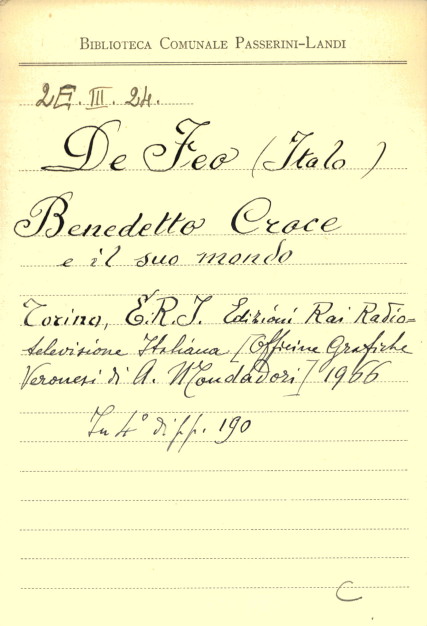 BIBLIOTECA COMUNALE PASSERINI-LANDI
2E. III. 24.
De Feo (Italo)
Benedetto Croce
e il suo mondo
Torino, E.R.I. Edizioni Rai Radio=
televisione Italiana [Officine Grafiche
Veronesi di A. Mondadori] 1966
In 4° di pp. 190
C